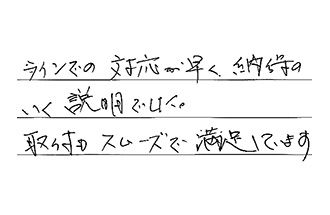 ラインでの対応が早く、納得の
いく説明でした。
取付もスムーズで満足しています